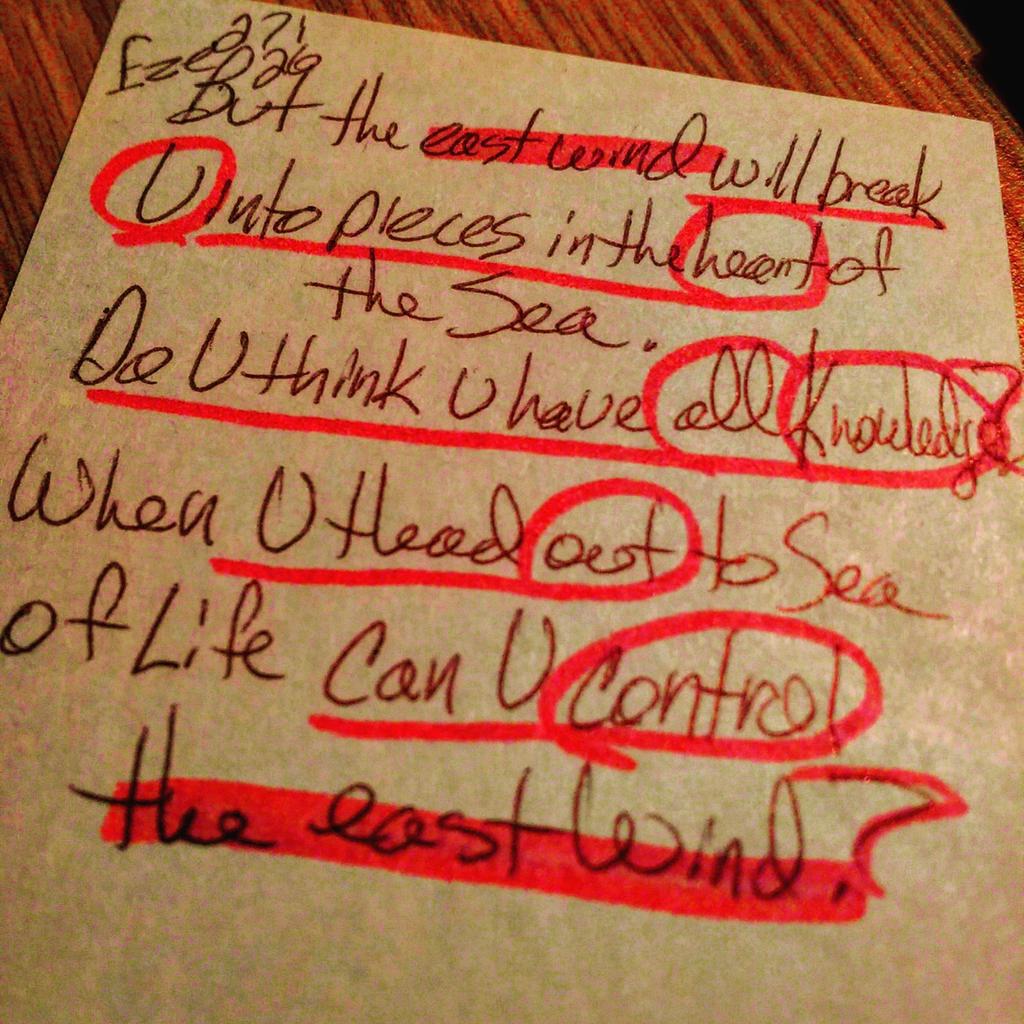 27:
Eze 26
But the east wind will break
U into pieces in the heart of
the Sea.
Do U think U have all Knowledge?
When U Head out to Sea
of Life Can U Control
the east wind?